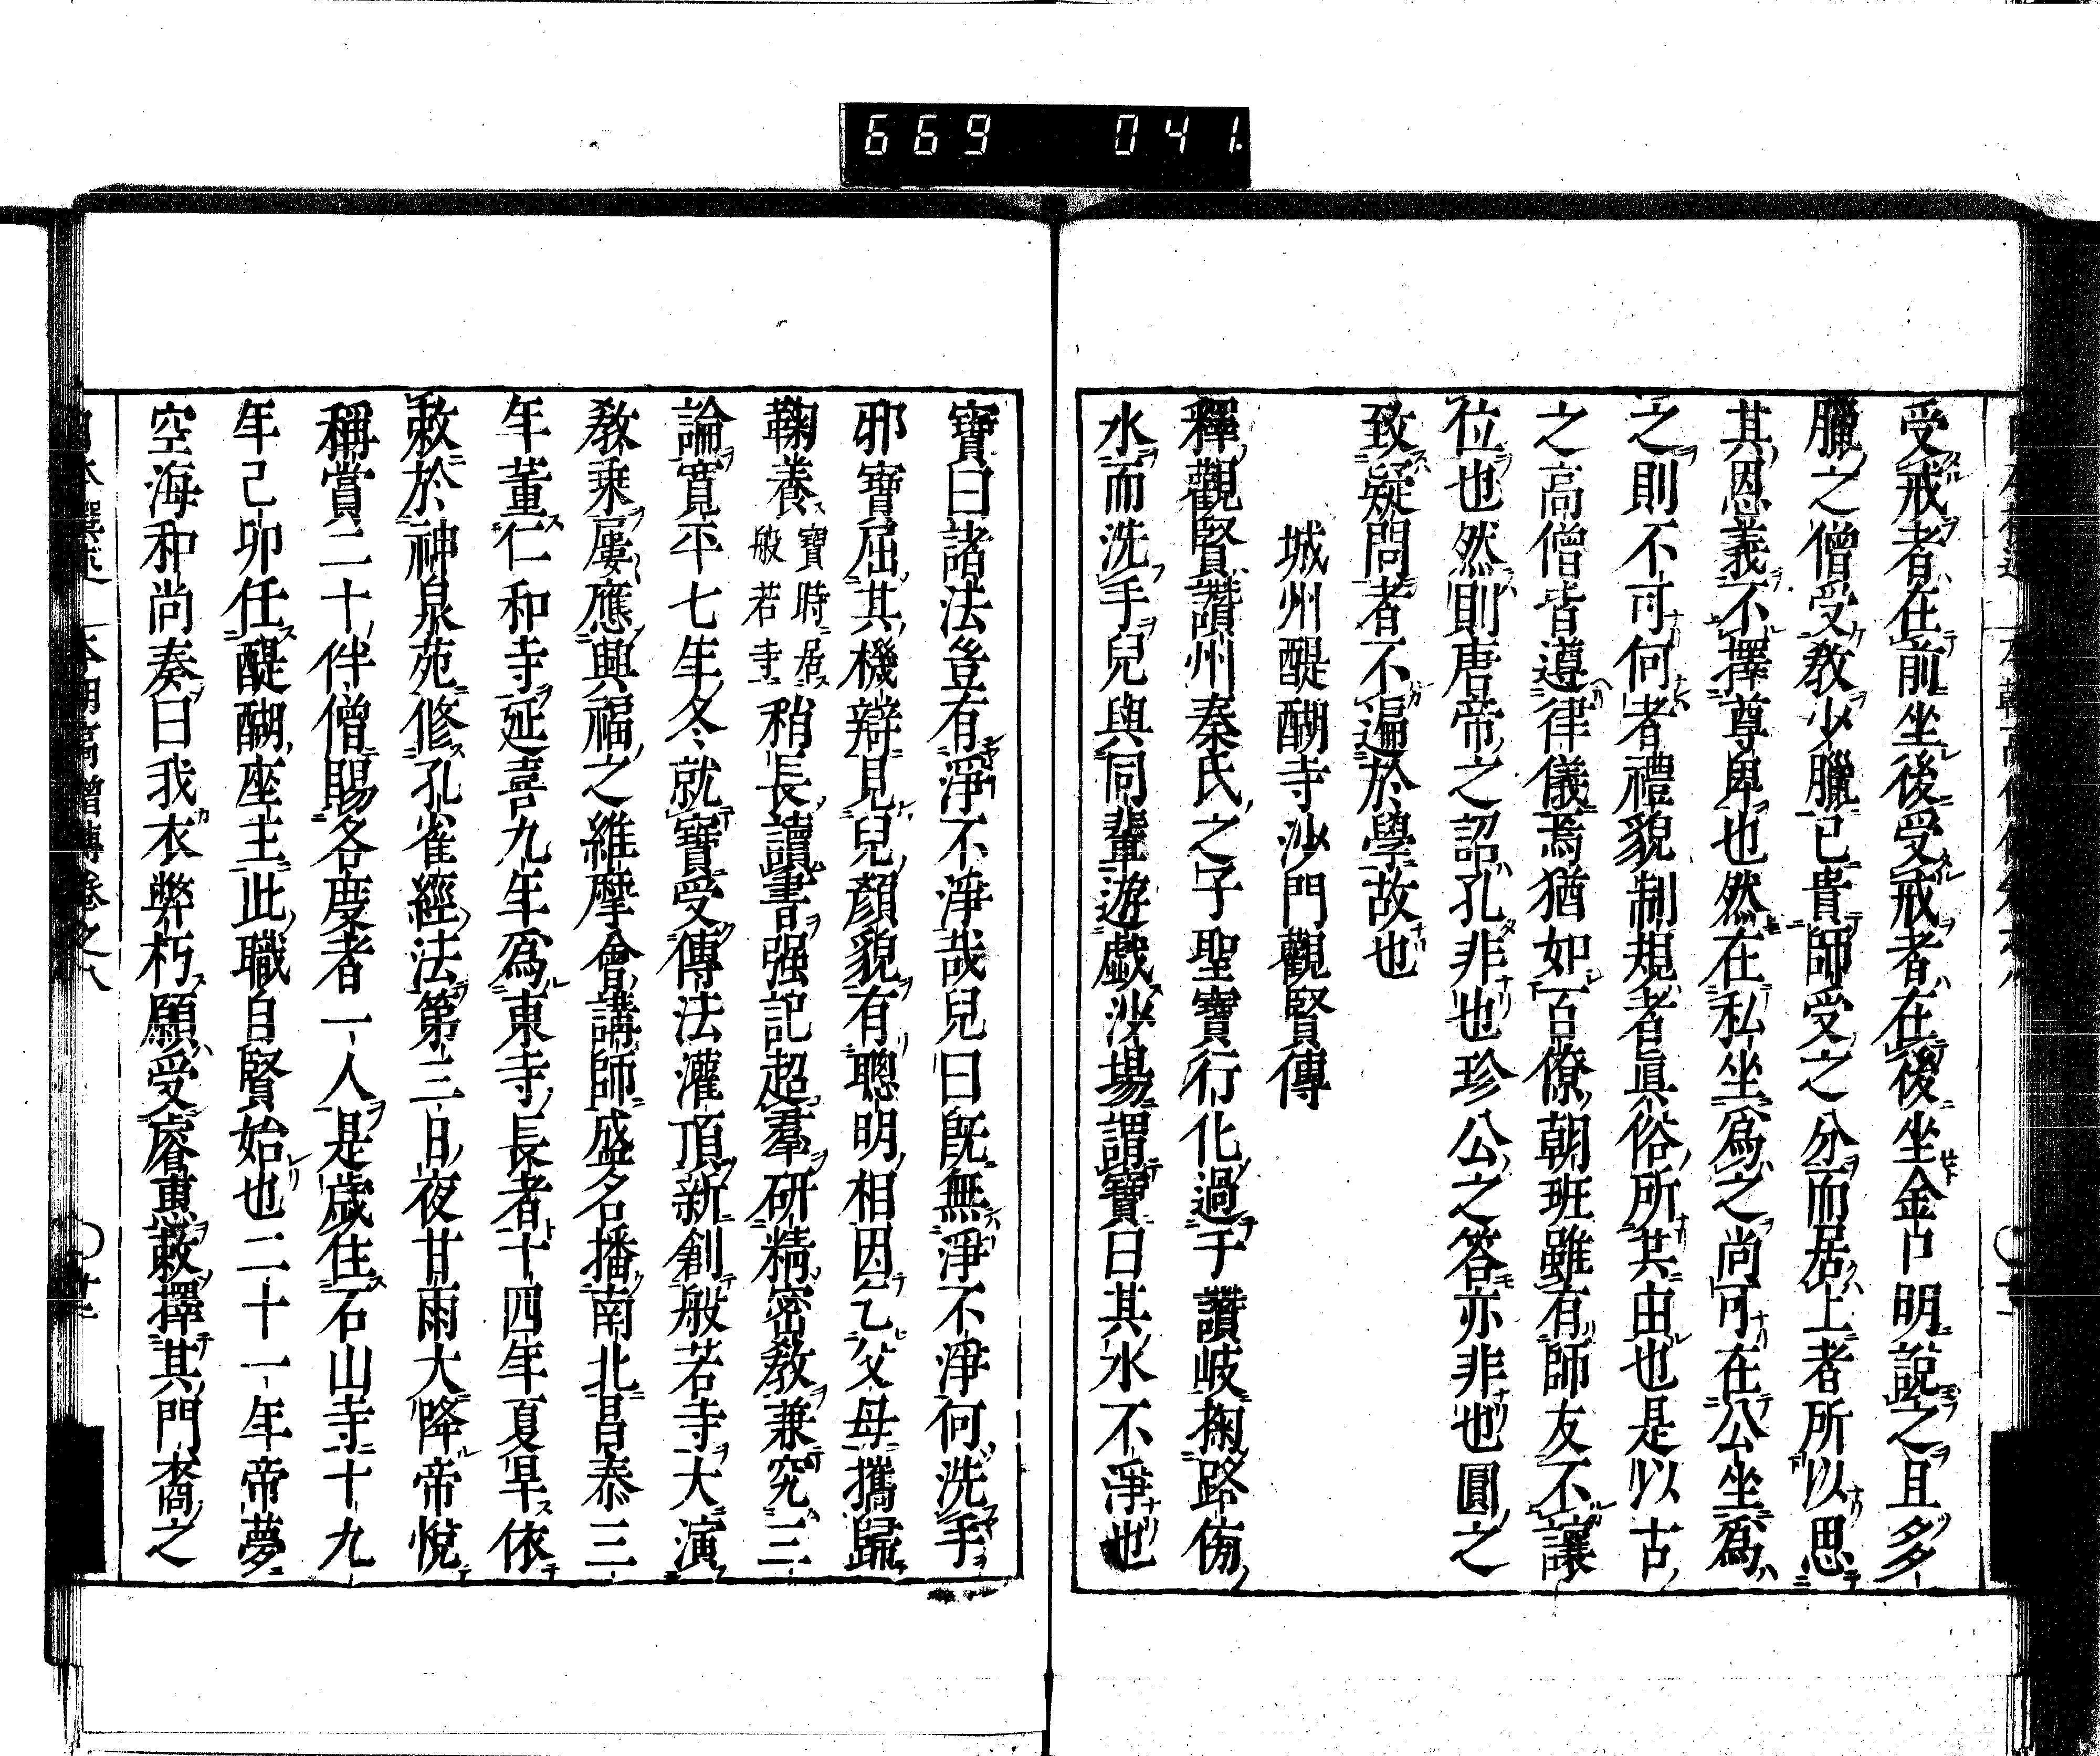 669 041
受戒者在前坐後受戒者在後坐金口明說之且多
臘之僧受敎少臘已貴師受之分而居上者所以思
其恩義不擇尊卑也然在私坐爲之尚可在公坐爲
之則不可何者禮貌制規者眞俗所共由也是以古
之高僧皆遵律儀焉猶如百僚朝班雖有師友不讓
位也然則唐帝之詔孔非也珍公之答亦非也圓之
致疑問者不遍於學故也
城州醍醐寺沙門觀賢傳
釋觀賢讚州秦氏之子聖寶行化過于讚岐掬路傍
水而洗手兒與同輩遊戲沙場謂寶曰其水不淨也
寶曰諸法豈有淨不淨哉兒曰既無淨不淨何洗手
邪寶屈其機辯見兒顏貌有聰明相因乞父母攜歸
鞠養寶時居般若寺稍長讀書强記超羣硏精密敎兼究三
論寬平七年冬就寶受傳法灌頂新創般若寺大演
敎乘屢應興福之維摩會講師盛名播南北昌泰三
年董仁和寺延喜九年爲東寺長者十四年夏旱依
敕於神泉苑修孔雀經法第三日夜甘雨大降帝悅
稱賞二十伴僧賜各度者一人是歲住石山寺十九
年己卯任醍醐座主此職自賢始也二十一年帝夢
空海和尚奏曰我衣弊朽願受睿惠敕擇其門裔之
本朝高僧傳卷之八